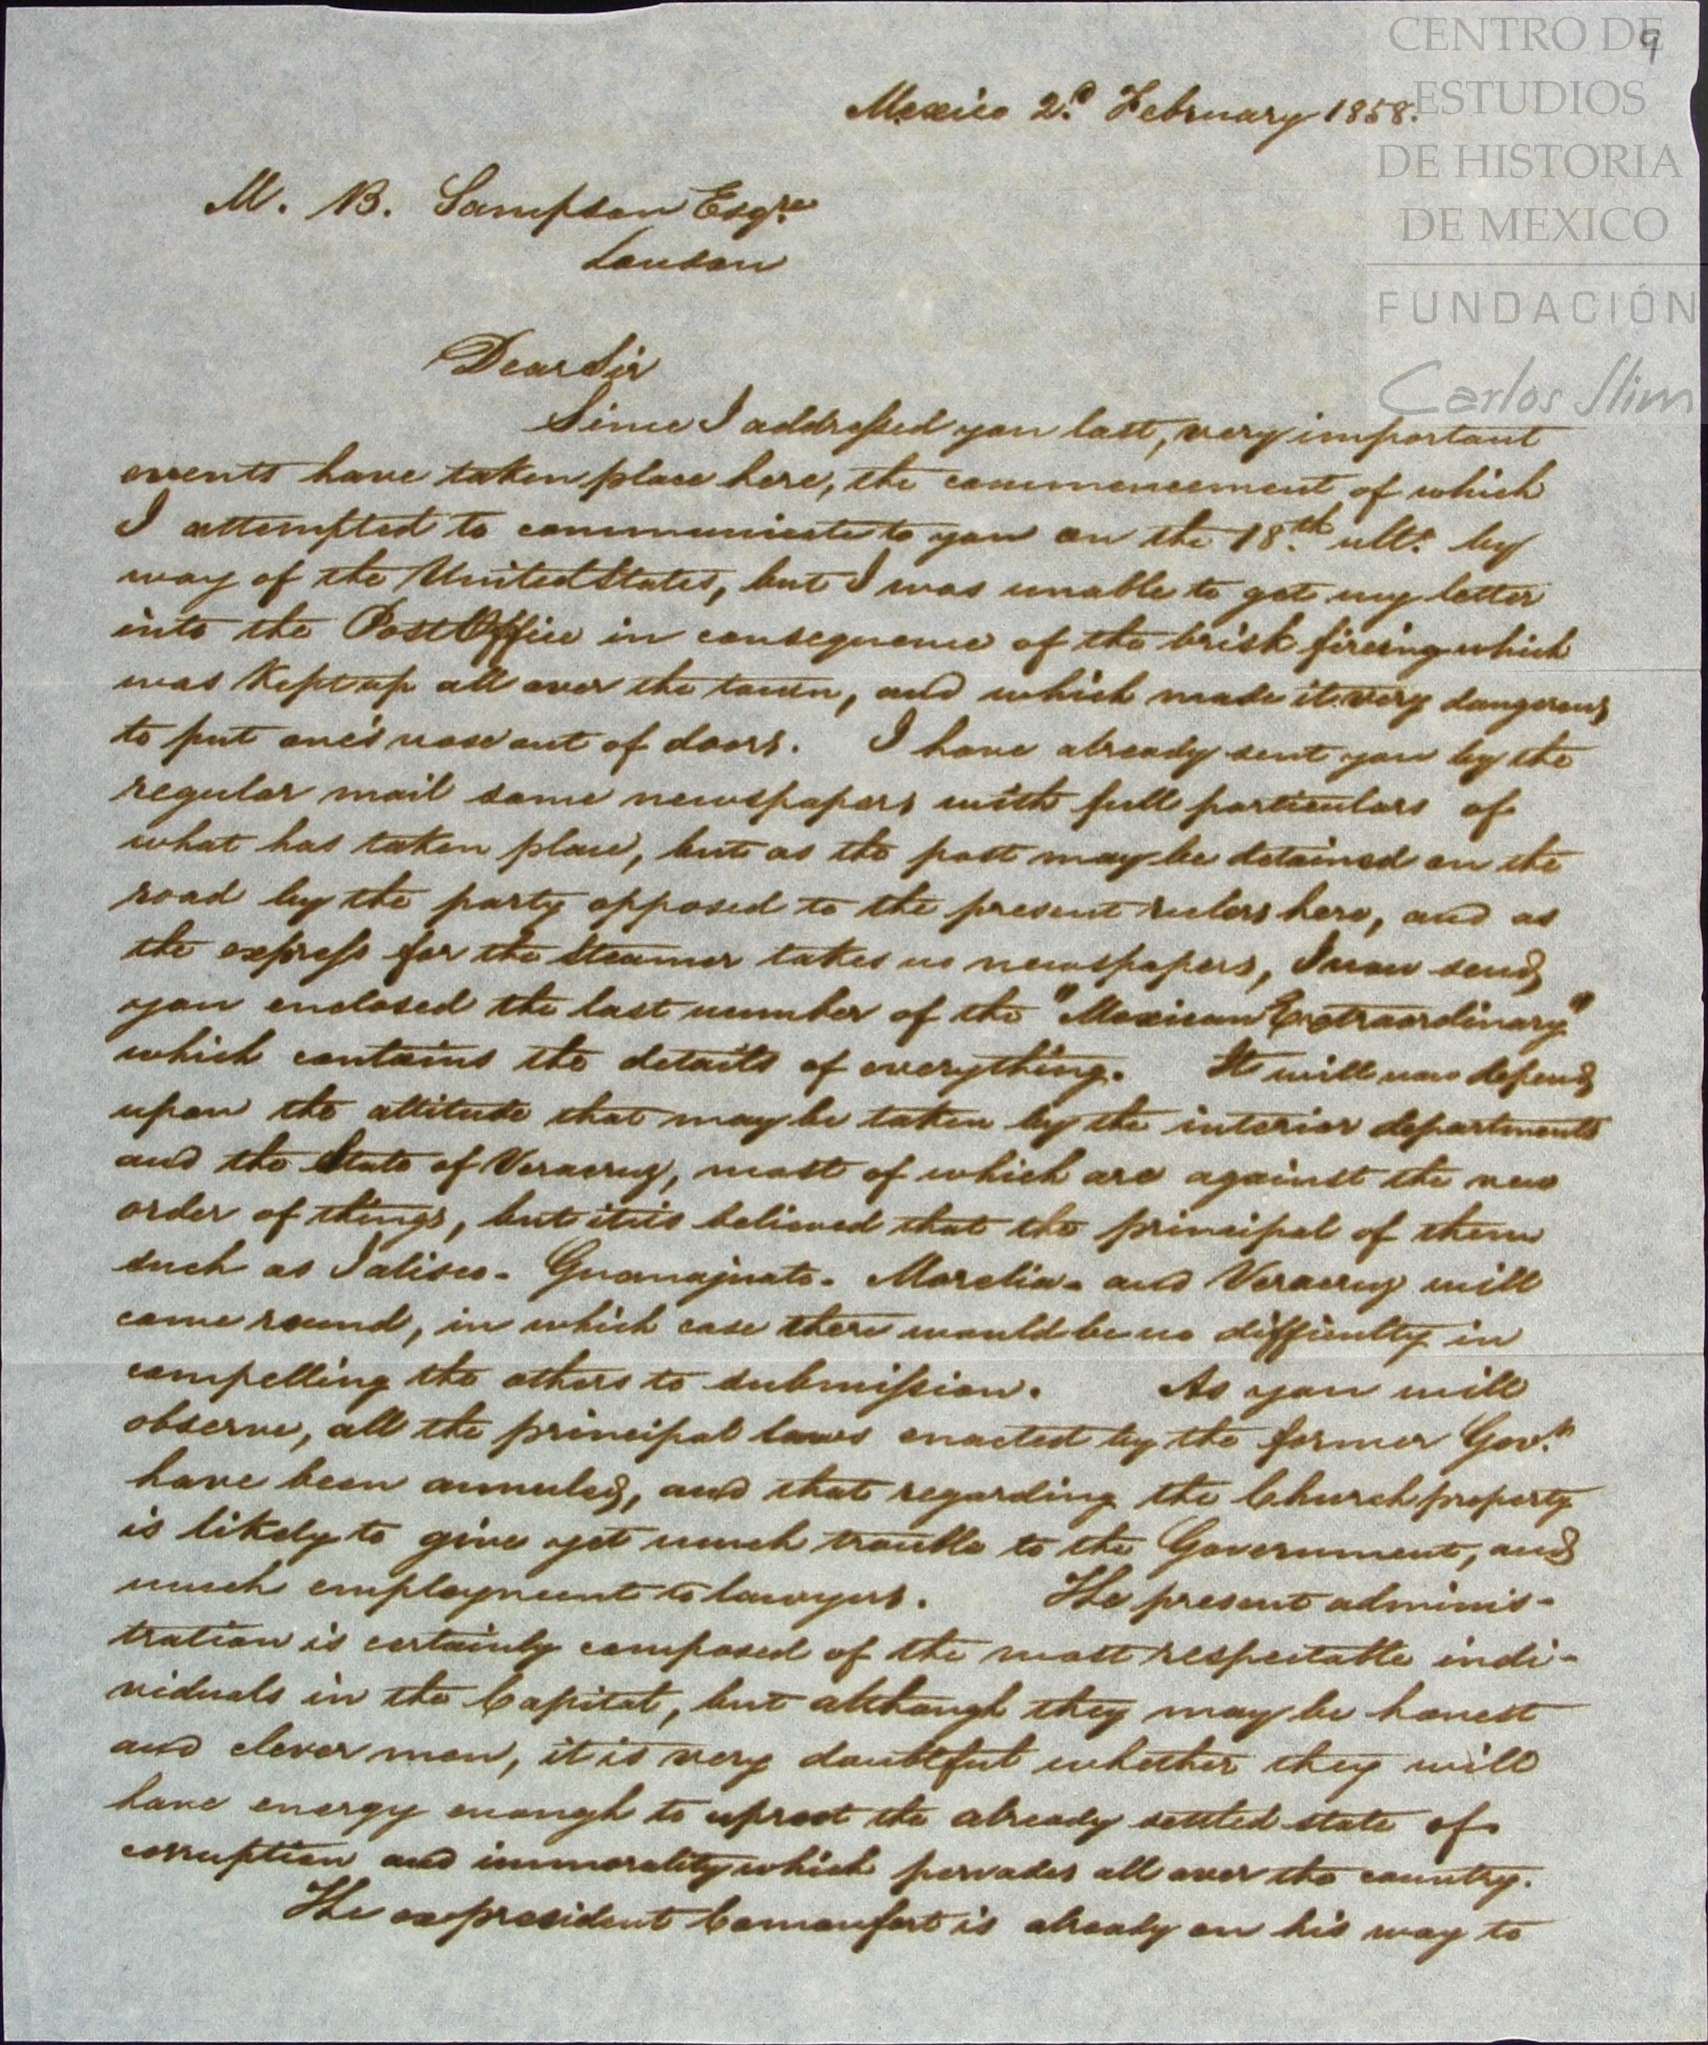 CENTRO DE
ESTUDIOS
DE HISTORIA
DE MEXICO
FUNDACIÓN
Carlos Slim
9
Mexico 2.d February 1858.
M. B. Sampson Esqre
London
Dear Sir
Since I addressed you last, very important
events have taken place here, the commencement of which
I attempted to communicate to you on the 18.th ult.o by
way of the United States, but I was unable to get my letter
into the Post Office in consequence of the brisk fireing which
was kept up all over the town, and which made it very dangerous
to put one's nose out of doors. I have already sent you by the
regular mail some newspapers with full particulars of
what has taken place, but as the post may be detained on the
road by the party opposed to the present rulers here, and as
the express for the Steamer takes no newspapers, I now send
you enclosed the last number of the "Mexican Extraordinary"
which contains the details of everything. It will now depend
upon the attitude that may be taken by the interior departments
and the State of Veracruz, most of which are against the new
order of things, but it is believed that the principal of them
such as Jalisco - Guanajuato - Morelia - and Veracruz will
come round, in which case there would be no difficulty in
compelling the others to submission. As you will
observe, all the principal laws enacted by the former Gov.t
have been annuled, and that regarding the Church property
is likely to give yet much trouble to the Government, and
much employment to lawyers. The present adminis-
tration is certainly composed of the most respectable indi-
viduals in the Capital, but although they may be honest
and clever men, it is very doubtful whether they will
have energy enough to uproot the already settled state of
corruption and immorality which pervades all over the country.
The expresident Comonfort is already on his way to